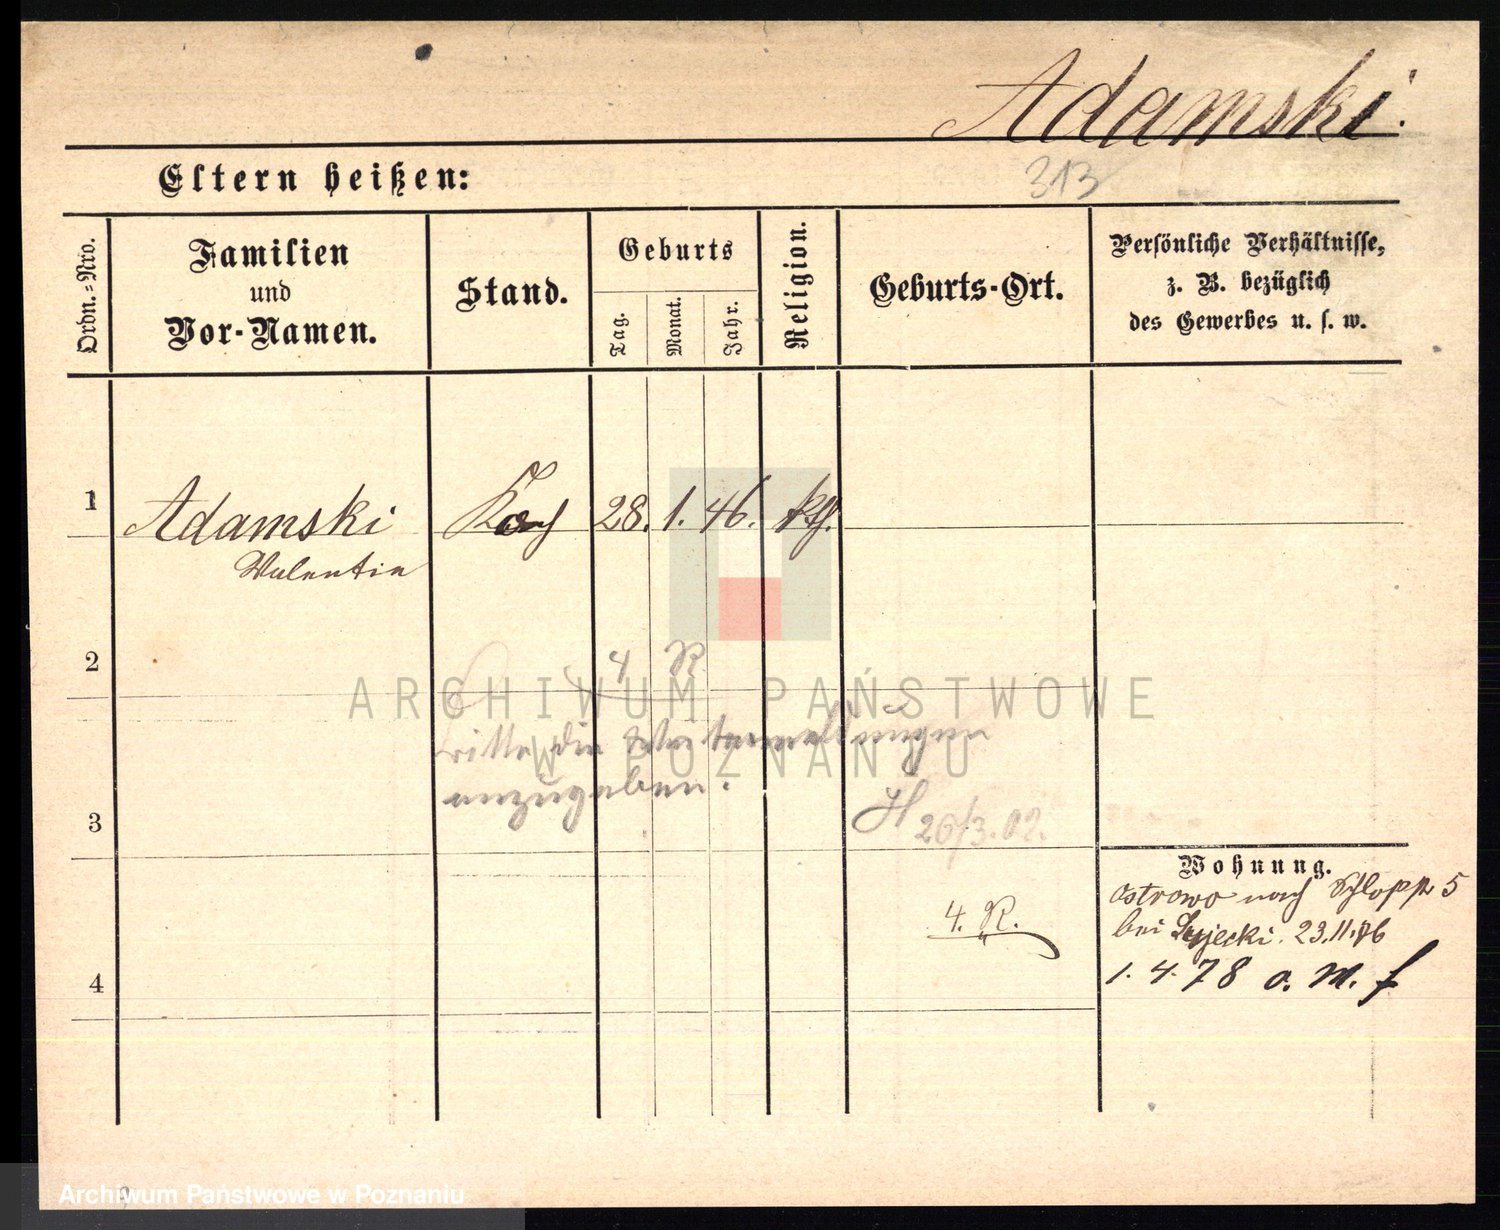 Adamski.
313
Eltern heißen:
Ordn.-Nro.
Familien
und
Vor-Namen.
Stand.
Geburts
Tag.
Monat.
Jahr.
Religion.
Geburts-Ort.
Persönliche Verhältnisse,
z. B. bezüglich
des Gewerbes u. s. w.
1
Adamski
Valentin
Koch
28. 1. 46. kth.
2
4 R.
ARCHIWUM PAŃSTWOWE
W POZNANIU
bitte die
anzugeben.
3
26/3.02.
4. R.
Wohnung.
Ostrowo nach Schlopp 5
bei 23.11.76
1.4.78 o. M. f
4
Archiwum Państwowe w Poznaniu